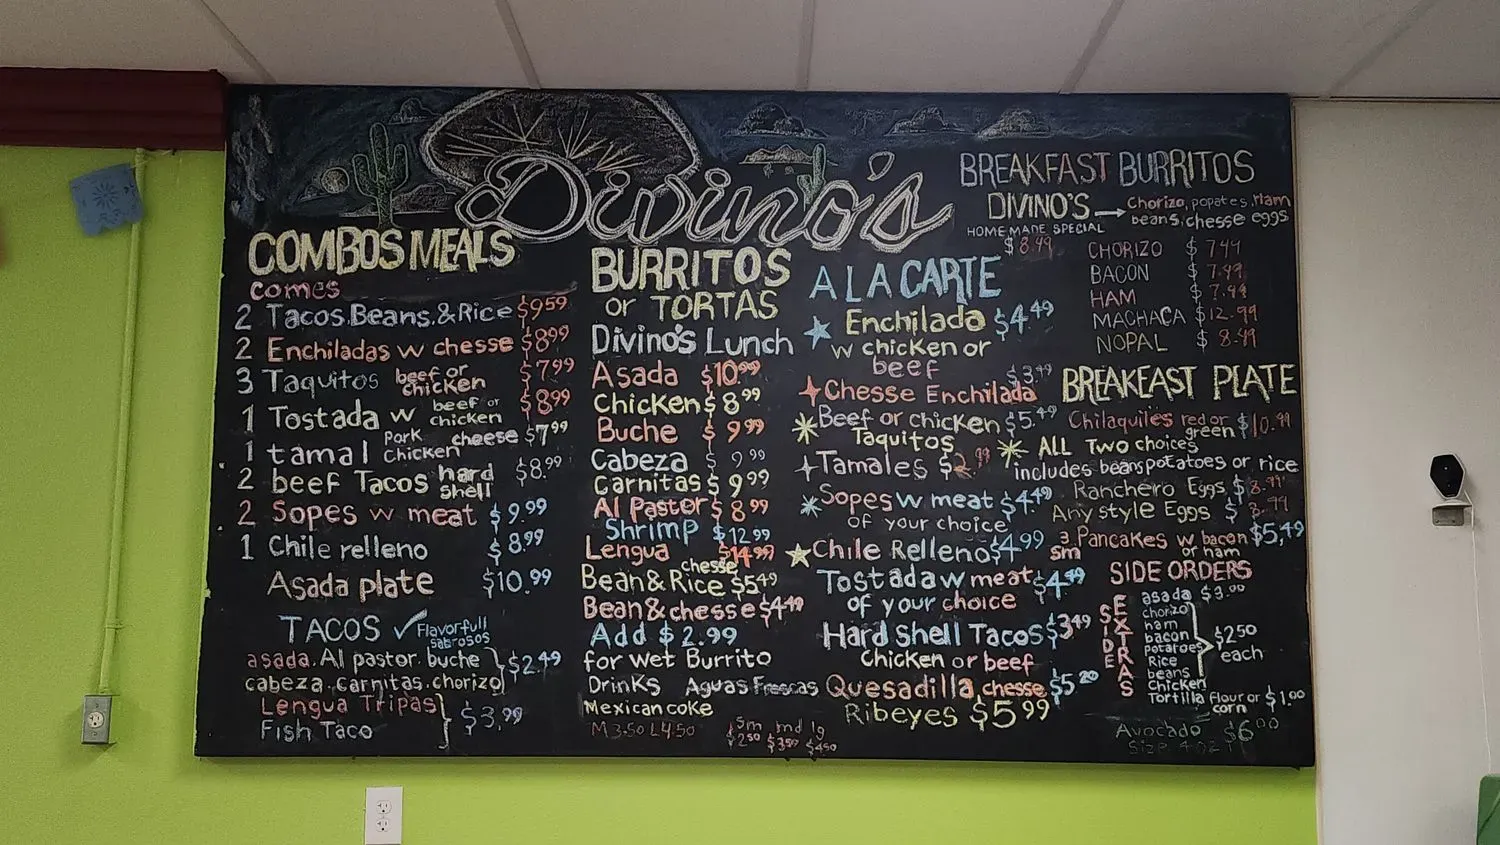 Divino's
COMBOS MEALS
comes
2 Tacos, Beans, & Rice $9.59
2 Enchiladas w chesse $8.99
3 Taquitos beef or chicken $7.99
1 Tostada w beef or chicken $8.99
1 tamal Pork Chicken cheese $7.99
2 beef Tacos hard shell $8.99
2 Sopes w meat $9.99
1 Chile relleno $8.99
Asada plate $10.99
TACOS ✓ Flavorfull
sabrosos
asada. Al pastor. buche
cabeza. carnitas. chorizo } $2.49
Lengua Tripas
Fish Taco } $3.99
BURRITOS
or TORTAS
Divino's Lunch
Asada $10.99
Chicken $8.99
Buche $9.99
Cabeza $9.99
Carnitas $9.99
Al Pastor $8.99
Shrimp $12.99
Lengua $14.99
Bean & Rice chesse $5.49
Bean & chesse $4.49
Add $2.99
for wet Burrito
Drinks Aguas Frescas
Mexican coke
M 3.50 L 4.50
Sm md lg
$2.50 $3.50 $4.50
A LA CARTE
Enchilada $4.49
w chicken or
beef
$3.49
Chesse Enchilada
Beef or chicken $5.49
Taquitos
Tamales $2.99
Sopes w meat $4.49
of your choice
Chile Relleno $4.99
Tostada w meat $4.49
of your choice
Hard Shell Tacos $3.49
Chicken or beef
Quesadilla, chesse $5.20
Ribeyes $5.99
BREAKFAST BURRITOS
DIVINO'S → Chorizo, popates, Ham
beans, chesse eggs
HOME MADE SPECIAL
$8.99
CHORIZO $7.49
BACON $7.49
HAM $7.49
MACHACA $12.99
NOPAL $8.49
BREAKEAST PLATE
Chilaquiles red or green $10.99
ALL Two choices
includes beans potatoes or rice
Ranchero Eggs $8.99
Any style Eggs $8.99
3 sm Pancakes w bacon or ham $5,49
SIDE ORDERS
SIDE EXTRAS
asada $3.00
chorizo
ham
bacon
potatoes
Rice
beans
Chicken
$2.50
each
Tortilla flour or corn $1.00
Avocado $6.00